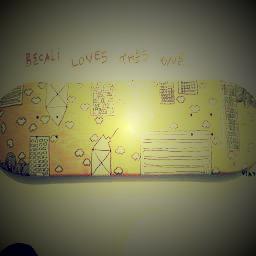 BECALI LOVES THIS ONE